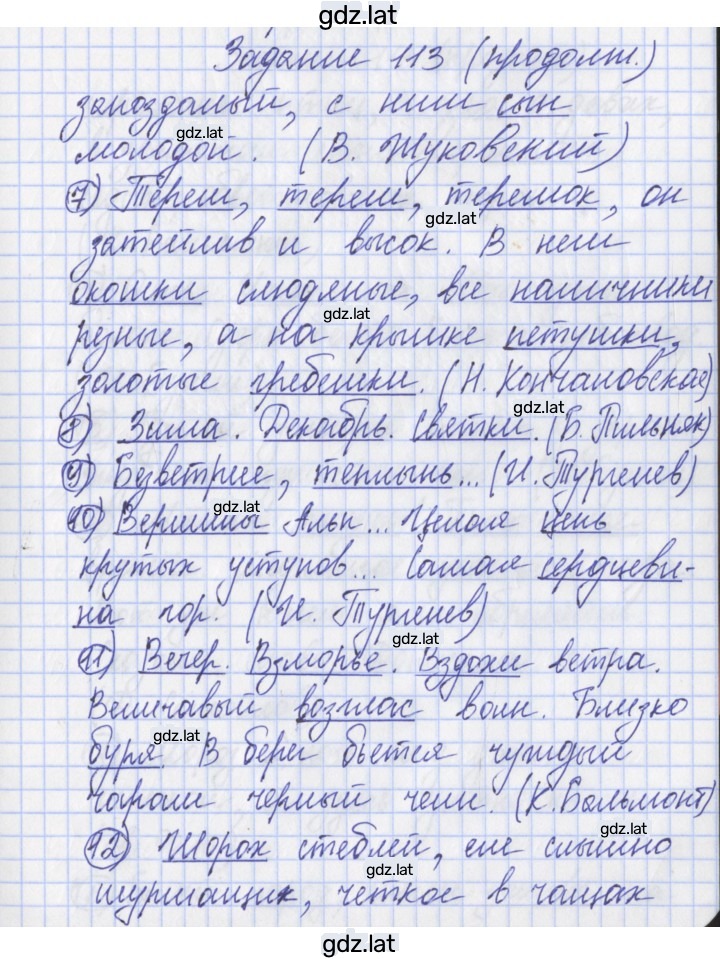 gdz.lat
Задание 113 (продолж.)
запоздалый, с ним сын
gdz.lat
молодой. (В. Жуковский)
7) Терем, терем, теремок, он
gdz.lat
затейлив и высок. В нем
окошки слюдяные, все наличники
gdz.lat
резные, а на крышке петушки,
золотые гребешки. (Н. Кончаловская)
gdz.lat
8) Зима. Декабрь. Святки. (Б. Пильняк)
9) Безветрие, теплынь... (И. Тургенев)
gdz.lat
10) Вершины Альп... Целая цепь
крутых уступов... Самая сердцеви-
на гор. (И. Тургенев)
gdz.lat
11) Вечер. Взморье. Вздохи ветра.
Величавый возглас волн. Близко
gdz.lat
буря. В берег бьется чуждый
чарам черный челн. (К. Бальмонт)
gdz.lat
12) Шорох стеблей, еле слышно
шуршащих, четкое в чащах
gdz.lat